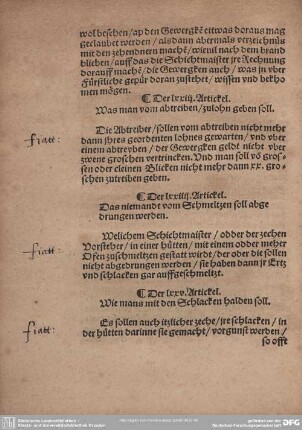 wol besehen/ap den Gewergkē ettwas doraus mag
geclaubet werden/alsdann abermals verzeichnüs
mit den zehendnern mache/wieuil nach dem brand
blieben/auff das die Schichtmaister jre Rechnung
dorauff machē/die Gewergken auch/was jn vber
Fürstliche gepür doran zustehet/wissen vnd bekho
men mögen.
¶ Der lxxiij. Artickel.
Was man vom abtreiben/zulohn geben soll.
fiatt:
Die Abtreiber/sollen vom abtreiben nicht mehr
dann jhres geordenten lohnes gewarten/vnd vber
einem abtreyben/der Gewergken geldt nicht vber
zwene groschen vertrincken. Vnd man soll vō gros-
sen oder cleinen Blicken nicht mehr dann xx. gro-
schen zutreiben geben.
¶ Der lxxiiij. Artickel.
Das niemandt vom Schmeltzen soll abge
drungen werden.
fiatt:
Welichem Schichtmaister/odder der zechen
Vorsteher/in einer hütten/mit einem odder meher
Ofen zuschmeltzen gestatt wirdt/der oder die sollen
nicht abgedrungen werden/sie haben dann jr Ertz
vnd schlacken gar auffgeschmeltzt.
¶ Der lxxv. Artickel.
Wie mans mit den Schlacken halden soll.
fiatt:
Es sollen auch itzlicher zeche/jre schlacken/in
der hütten darinne sie gemacht/vorgunst werden/
so offt